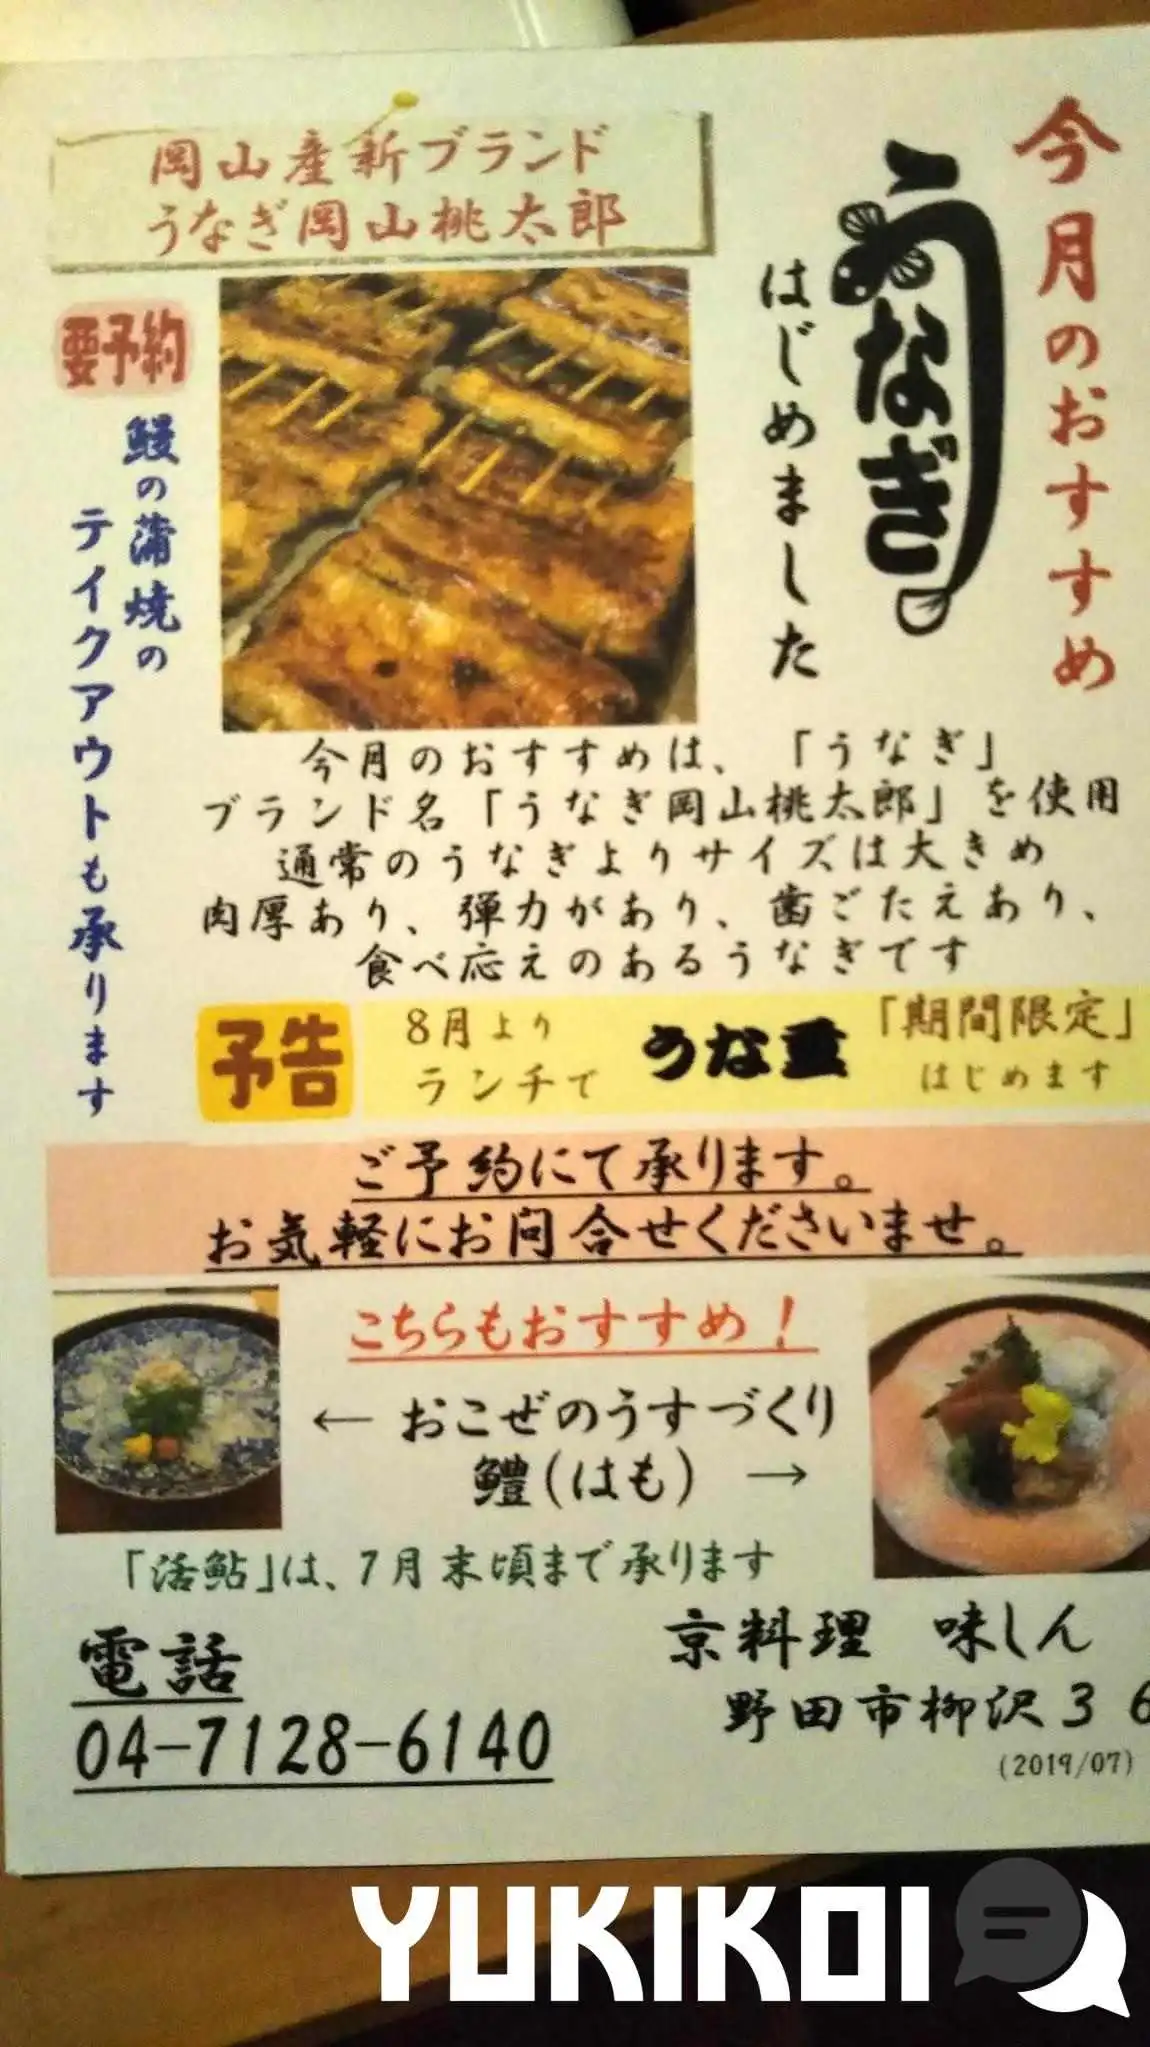 今月のおすすめ
うなぎ
はじめました
岡山産新ブランド
うなぎ岡山桃太郎
要予約
鰻の蒲焼の
テイクアウトも承ります
今月のおすすめは、「うなぎ」
ブランド名「うなぎ岡山桃太郎」を使用
通常のうなぎよりサイズは大きめ
肉厚あり、弾力があり、歯ごたえあり、
食べ応えのあるうなぎです
予告
8月より
ランチで
うな重
「期間限定」
はじめます
ご予約にて承ります。
お気軽にお問合せくださいませ。
こちらもおすすめ!
← おこぜのうすづくり
鱧(はも) →
「活鮎」は、7月末頃まで承ります
電話
04-7128-6140
京料理 味しん
野田市柳沢36
(2019/07)
YUKIKOI